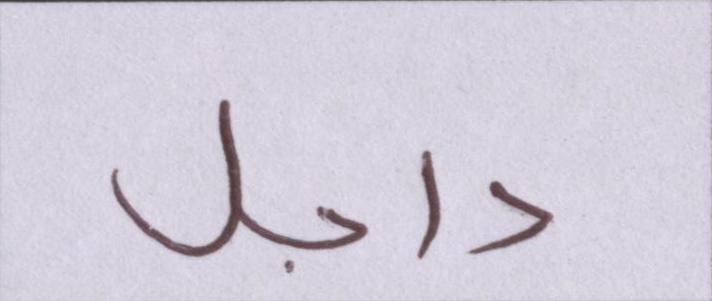 داجل